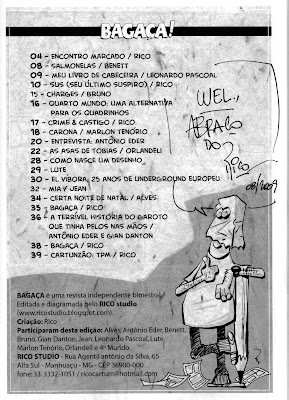 BAGAÇA!
04 – ENCONTRO MARCADO / RICO
08 – SALMONELAS / BENETT
09 – MEU LIVRO DE CABECEIRA / LEONARDO PASCOAL
10 – SUS (SEU ÚLTIMO SUSPIRO) / RICO
15 – CHARGES / BRUNO
16 – QUARTO MUNDO: UMA ALTERNATIVA
PARA OS QUADRINHOS
17 – CRIME & CASTIGO / RICO
18 – CARONA / MARLON TENÓRIO
20 – ENTREVISTA: ANTÔNIO EDER
22 – AS ASAS DE TOBIAS / ORLANDELI
28 – COMO NASCE UM DESENHO
29 – LUTE
30 – EL VIBORA, 25 ANOS DE UNDERGROUND EUROPEU
32 – MIA Y JEAN
34 – CERTA NOITE DE NATAL / ALVES
35 – BAGAÇA / RICO
36 – A TERRÍVEL HISTÓRIA DO GAROTO
QUE TINHA PELOS NAS MÃOS /
ANTÔNIO EDER E GIAN DANTON
38 – BAGAÇA / RICO
39 – CARTUNZÃO: TPM / RICO
WEL.,
ABRAÇO
DO
RICO
08/2009
BAGAÇA é uma revista independente bimestral.
Editada e diagramada pelo RICO studio
(www.ricostudio.blogspot.com).
Criação: Rico
Participaram desta edição: Alves, Antônio Eder, Benett,
Bruno, Gian Danton, Jean, Leonardo Pascoal, Lute,
Marlon Tenório, Orlandeli e 4º Mundo.
RICO STUDIO - Rua Agentil antônio da Silva, 65
Alfa Sul - Manhuaçu - MG - CEP 36900-000
fone: 33 3332-1051 / ricocartum@hotmail.com